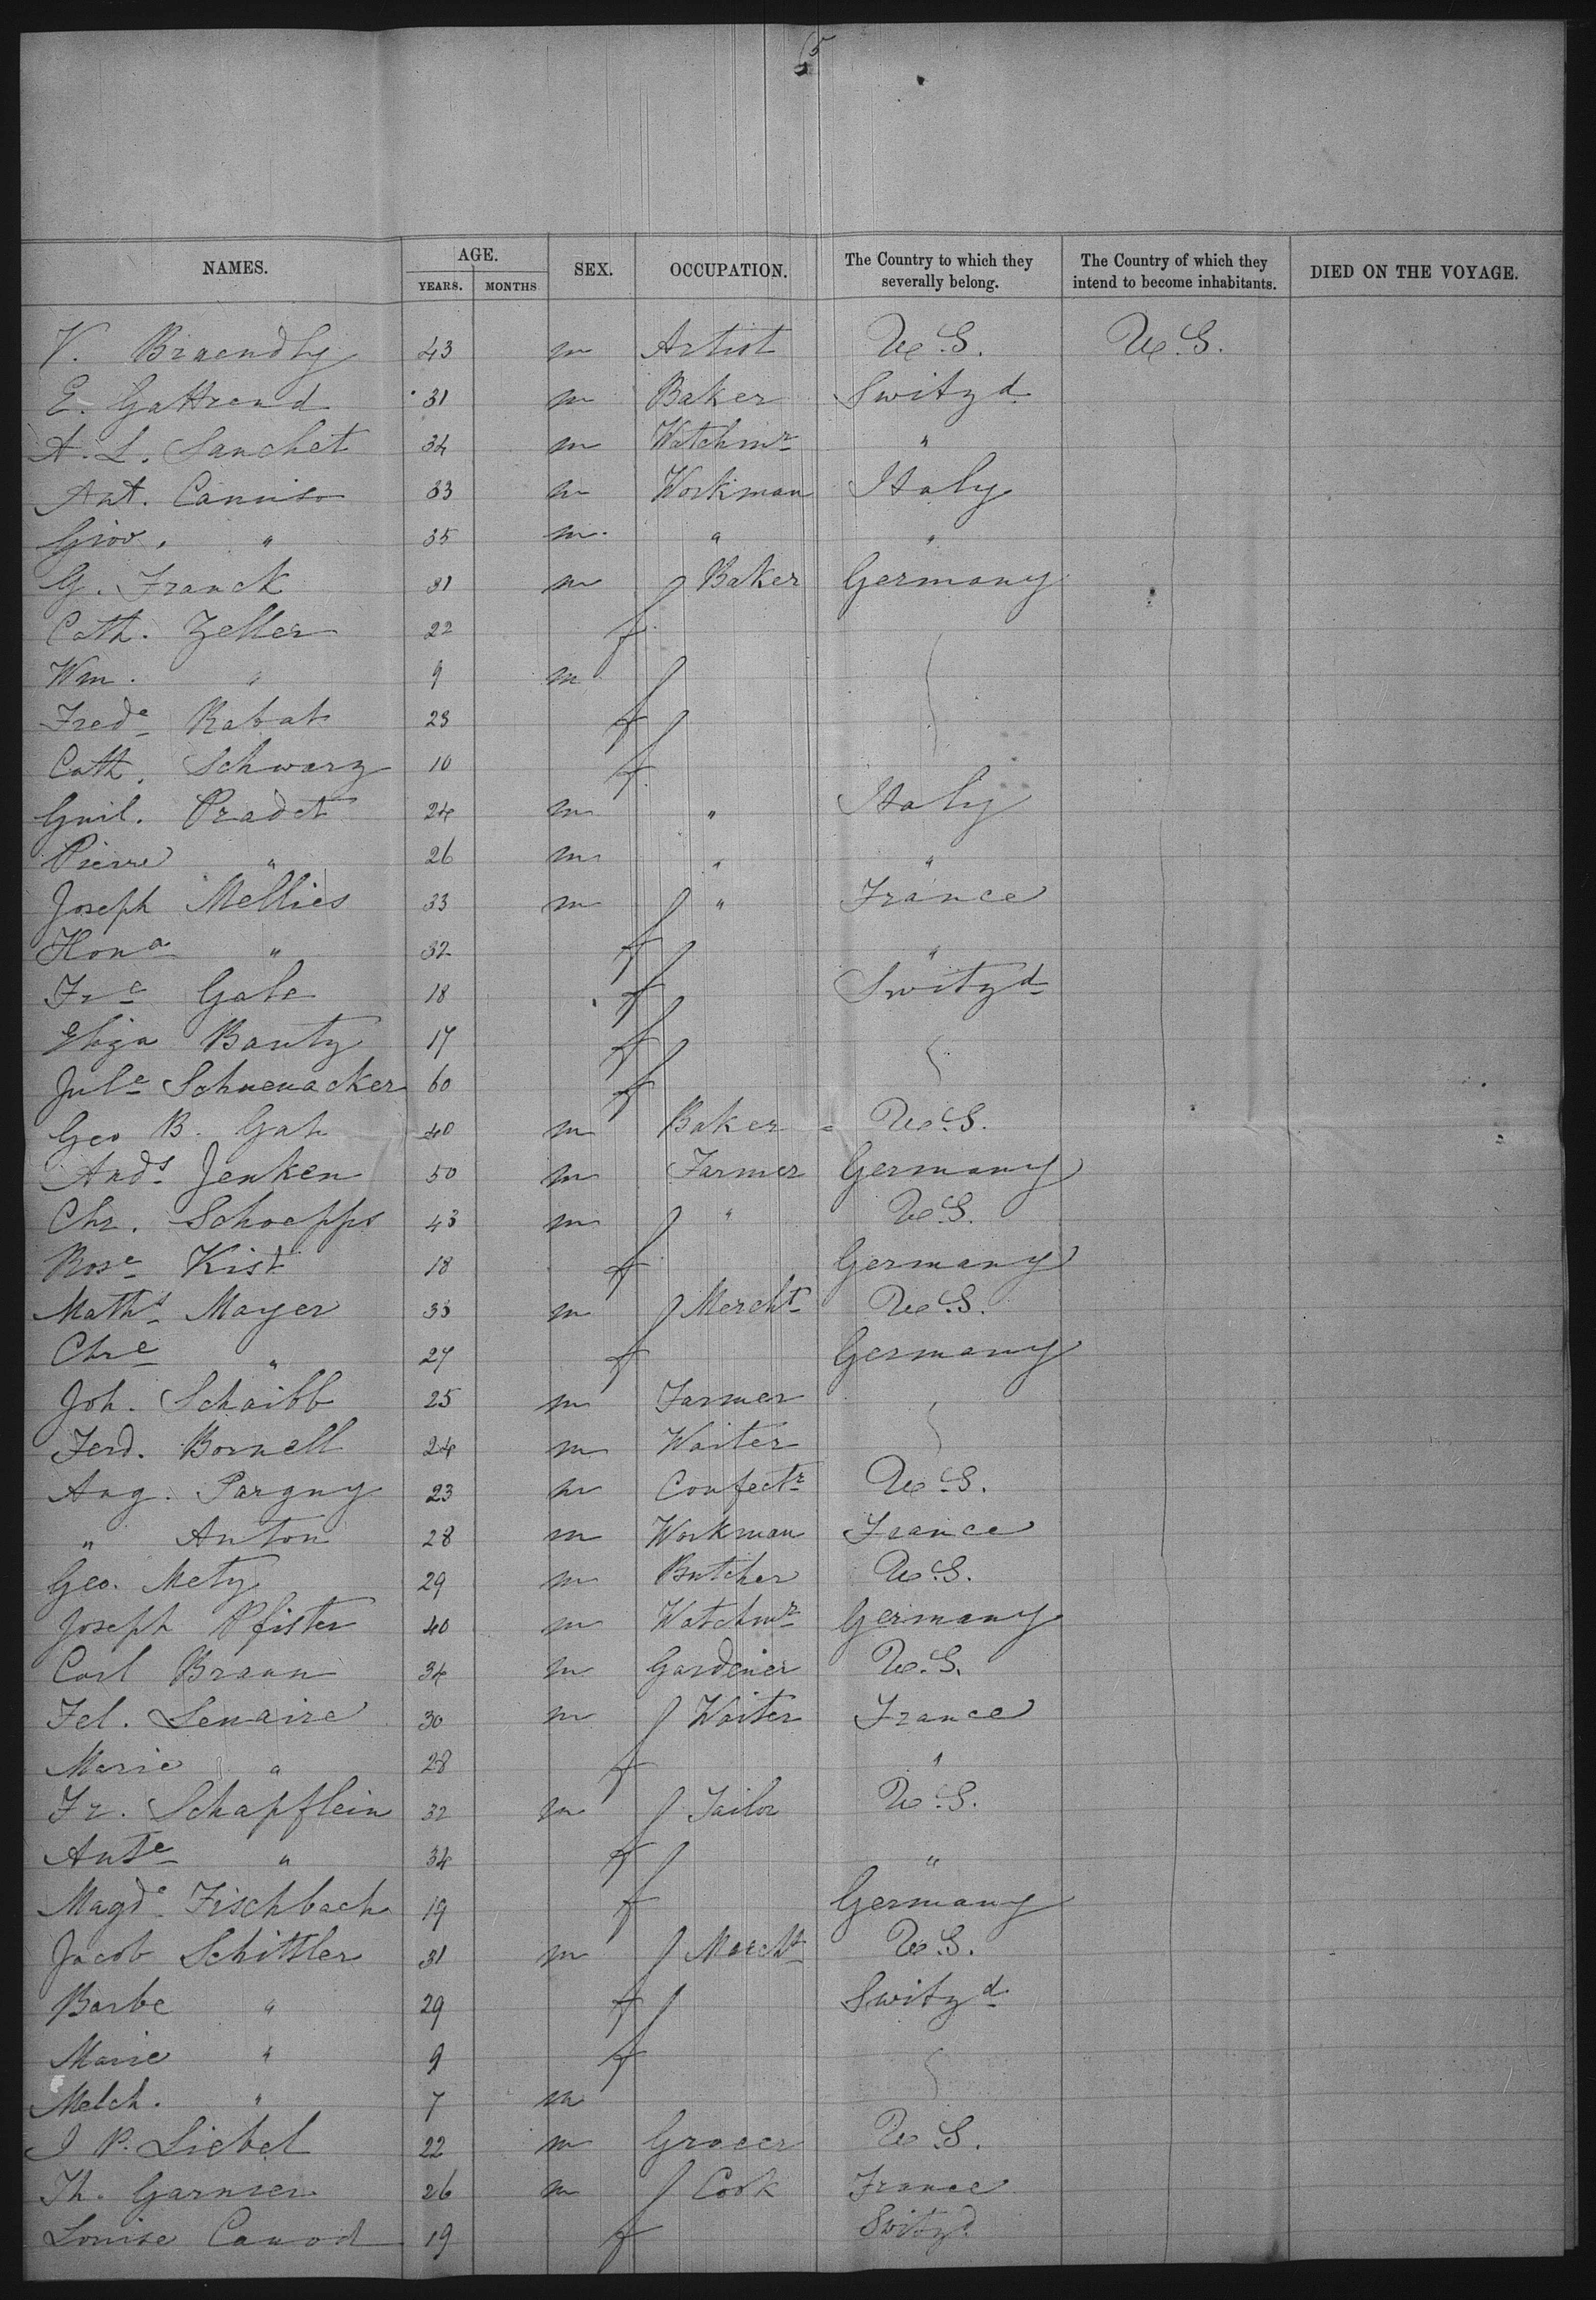 5
NAMES. AGE. YEARS. MONTHS SEX. OCCUPATION. The Country to which they severally belong. The Country of which they intend to become inhabitants. DIED ON THE VOYAGE.
V. Braendly 43 m Artist U.S. U.S.
E. Gattrand 31 m Baker Switzd
A. L. Sanchet 34 m Watchmr "
Ant. Camiso 33 m Workman Italy
Giov. " 35 m. " "
G. Franck 31 m Baker Germany
Cath. Zeller 22 f
Wm. " 9 m
Frede Rabat 23 f
Cath. Schwarz 10 f
Guil. Pradet 24 m " Italy
Pierre " 26 m " "
Joseph Mellies 33 m " France
Hona " 32 f "
Fre Gale 18 f Switzd
Eliza Bantz 17 f
Jule Schuenacker 60 f
Geo B. Gah 40 m Baker U.S.
Ands Jenken 50 m Farmer Germany
Chr. Schoepps 43 m " U.S.
Rose Kist 18 f Germany
Maths Mayer 33 m Mercht U.S.
Chre " 27 f Germany
Joh. Schaibb 25 m Farmer
Ferd. Bornell 24 m Waiter
Aug. Pargny 23 m Confectr U.S.
" Anton 28 m Workman France
Geo. Metz 29 m Butcher U.S.
Joseph Pfister 40 m Watchmr Germany
Carl Braun 34 m Gardener U.S.
Fel. Lenaire 30 m Waiter France
Marie " 28 f "
Fr. Schapflein 32 m Tailor U.S.
Ante " 34 f "
Magde Fischbach 19 f Germany
Jacob Schittler 31 m Mercht U.S.
Barbe " 29 f Switzd
Marie " 9 f
Melch. " 7 m
J P. Liebel 22 m Grocer U.S.
Th. Garnier 26 m Cook France
Louise Canod 19 f Switzd